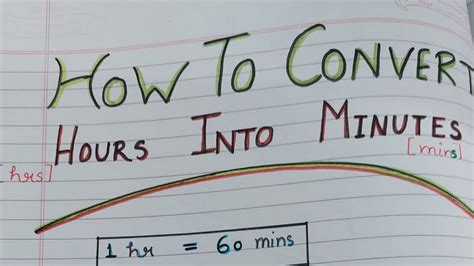 How To Convert
Hours Into Minutes
[hrs] [mins]
1 hr = 60 mins